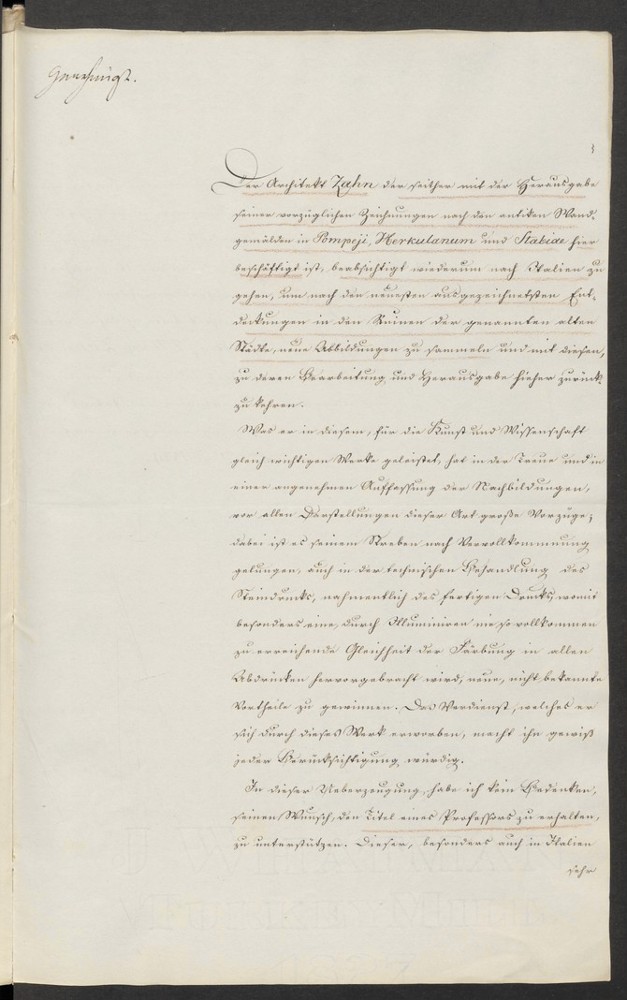 Genehmigt.
3
Der Architekt Zahn der seither mit der Herausgabe
seiner vorzüglichen Zeichnungen nach den antiken Wand-
gemälden in Pompeji, Herkulanum und Stabiae hier
beschäftigt ist, beabsichtigt wiederum nach Italien zu
gehen, um nach den neuesten ausgezeichnetsten Ent-
deckungen in den Ruinen der genannten alten
Städte, neue Abbildungen zu sammeln und mit diesen,
zu deren Bearbeitung und Herausgabe hieher zurück-
zu kehren.
Was er in diesem, für die Kunst und Wissenschaft
gleich wichtigen Werke geleistet, hat in der Treue und in
einer angenehmen Auffassung der Nachbildungen,
vor allen Darstellungen dieser Art große Vorzüge;
dabei ist es seinem Streben nach Vervollkommnung
gelungen, auch in der technischen Behandlung des
Steindrucks, nahmentlich des farbigen Drucks, womit
besonders eine, durch Illuminiren nie so vollkommen
zu erreichende Gleichheit der Färbung in allen
Abdrücken hervorgebracht wird, neue, nicht bekannte
Vortheile zu gewinnen. Das Verdienst, welches er
sich durch dieses Werk erworben, macht ihn gewiß
jeder Berücksichtigung würdig.
In dieser Ueberzeugung, habe ich kein Bedenken,
seinen Wunsch, den Titel eines Professors zu erhalten,
zu unterstützen. Dieser, besonders auch in Italien
sehr